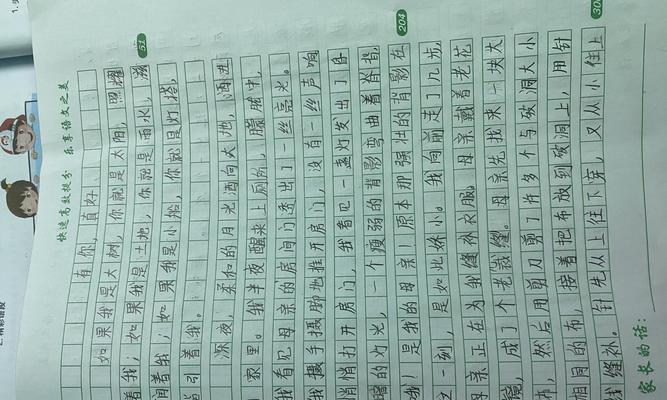 快速高效提分 乐享语文之美
有你，真好
如果我是大树，你就是太阳，照耀
着我；如果我是土地，你就是雨水，滋
润着我；如果我是小船，你就是灯塔，
引着我。
51
深夜，柔和的月光洒向大地，洒进
家里。我半夜醒来上厕所，朦胧中，
我看见母亲的房间门透出了一丝亮光。
我蹑手蹑脚地推开房门，没有一丝声响
悄悄打开房门，我看见一盏灯发出了昏
暗的灯光，一个瘦弱的背影弯曲着脊背，
我！是我的母亲！原本那强壮的背影在
204
之一刻，是如此妖小。我向前走了几步，
母亲正在为我缝补衣服。母亲戴着老花
镜，成了个老裁缝。母亲先找来一块大
布，然后用剪刀剪了许多个与破洞大小
相同的布，接着把布放到破洞上，用针
线缝补。针先从上往下穿，又从小往上
家长的话：